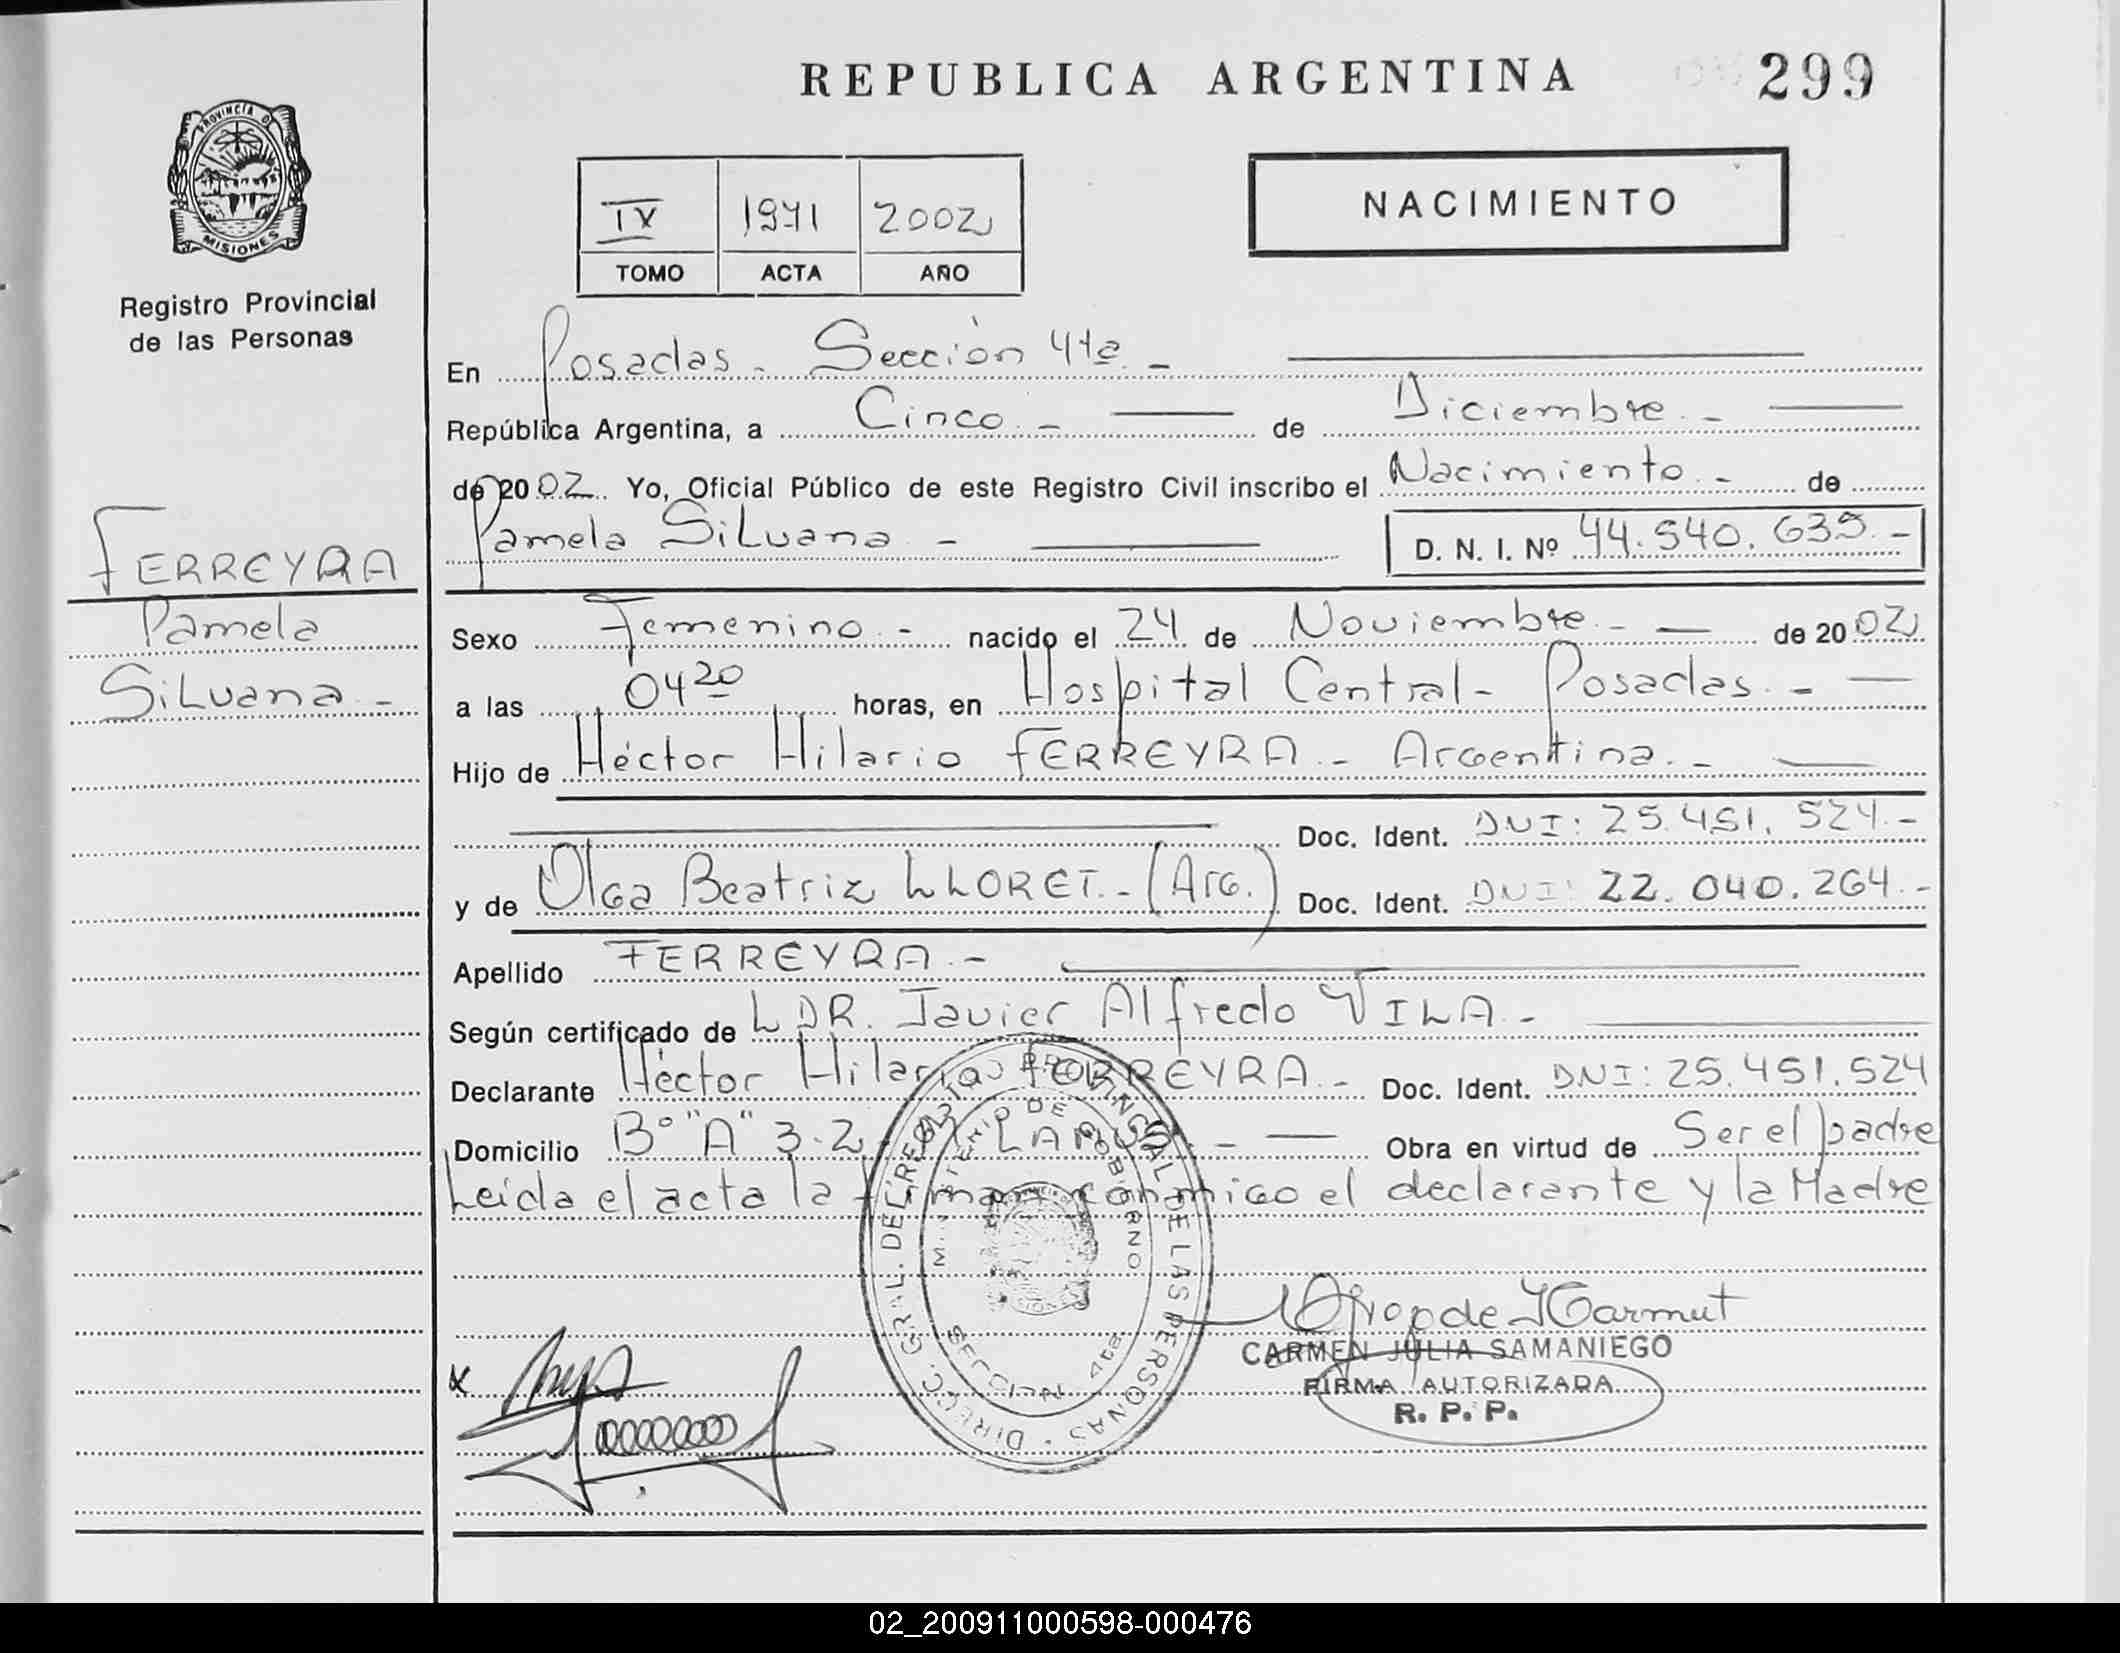 REPUBLICA ARGENTINA
299
PROVINCIA D
MISIONES
Registro Provincial
de las Personas
IX 1941 2002
TOMO ACTA AÑO
NACIMIENTO
FERREYRA
Pamela
Silvana.-
En Posadas.- Sección 4ta.-
República Argentina, a Cinco.- de Diciembre.-
de 2002. Yo, Oficial Público de este Registro Civil inscribo el Nacimiento.- de
Pamela Silvana.- D. N. I. Nº 44.540.639.-
Sexo Femenino.- nacido el 24 de Noviembre.- de 2002
a las 04 20 horas, en Hospital Central- Posadas.-
Hijo de Héctor Hilario FERREYRA.- Argentina.-
Doc. Ident. DNI: 25.451.524.-
y de Olga Beatriz LLORET.- (Arg.) Doc. Ident. DNI: 22.040.264.-
Apellido FERREYRA.-
Según certificado de LDR. Javier Alfredo VILA.-
Declarante Héctor Hilario FERREYRA.- Doc. Ident. DNI: 25.451.524
Domicilio Bº "A" 3.2. Obra en virtud de Ser el padre
Leída el acta la firman conmigo el declarante y la Madre
DIRECC. GRAL. DEL REG. PROVINCIAL DE LAS PERSONAS
MINISTERIO DE GOBIERNO
SECCION 4ta
CARMEN JULIA SAMANIEGO
FIRMA AUTORIZADA
R. P. P.
02_200911000598-000476